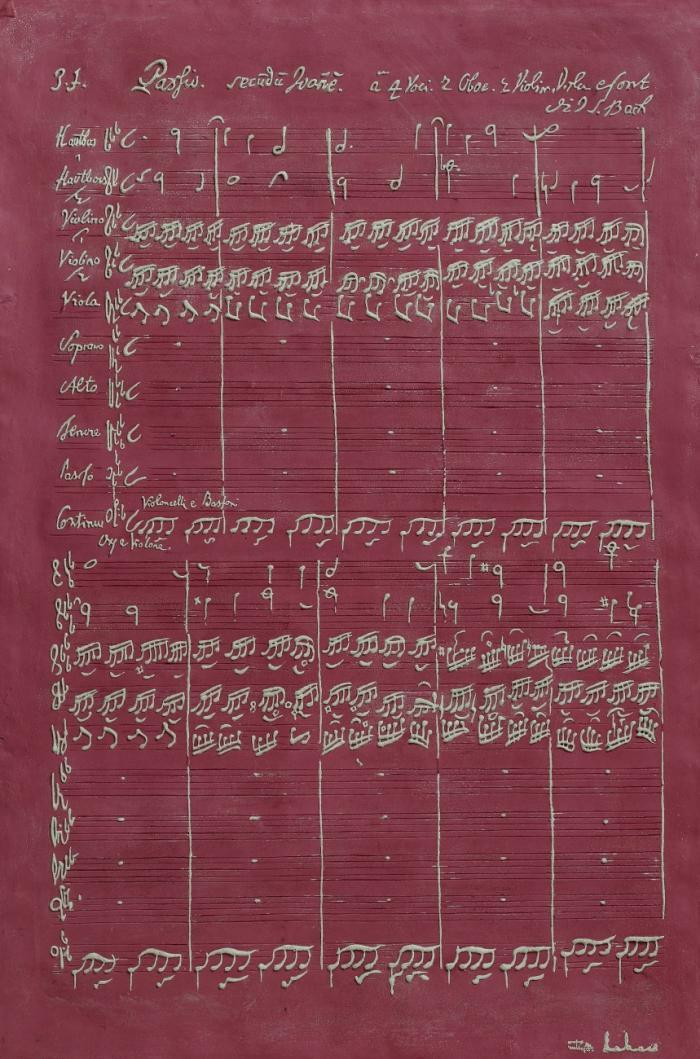 J.J. Passio. secundū Joañē. à 4 Voci. 2 Oboe. 2 Violini, Viola e Cont.
di J. S. Bach
Hautbois
1
Hautbois
2
Violino
1
Violino
2
Viola
Soprano
Alto
Tenore
Basso
Violoncelli e Bassoni
Continuo
Org. e Violone.